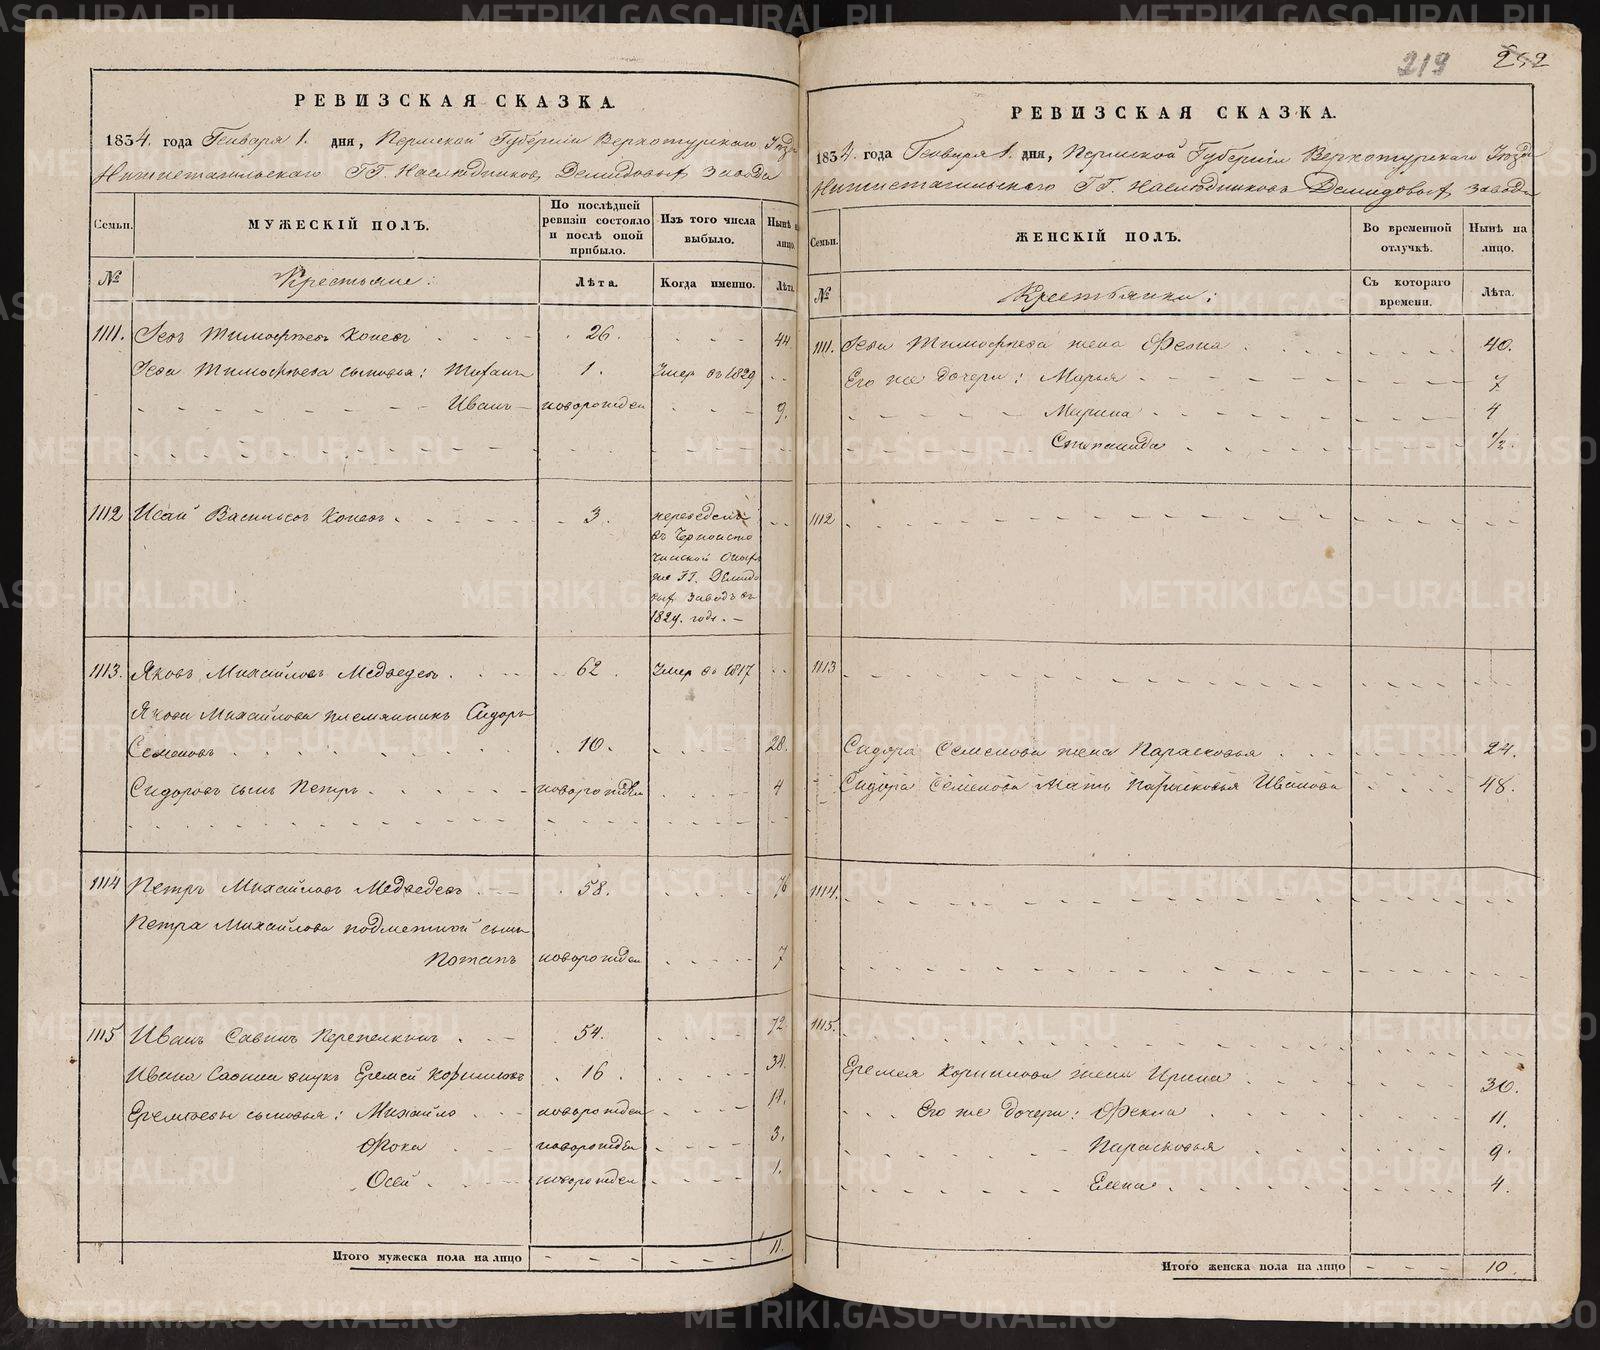 219 252
РЕВИЗСКАЯ СКАЗКА.
1834. года Генваря 1. дня, Пермской Губернiи Верхотурскаго Уѣзда
Нижнетагильскаго ГГ. Наслѣдниковъ Демидовыхъ завода
Семьи.
МУЖЕСКIЙ ПОЛЪ.
По послѣдней ревизiи состояло и послѣ оной прибыло.
Изъ того числа выбыло.
Нынѣ на лицо.
№
Крестьяне:
Лѣта.
Когда именно.
Лѣта.
1111. Тимофѣевъ Копевъ 26. 44
Тимофѣева сыновья: 1. Умер въ 1829
Иванъ новорожден 9.
1112 Исай Васильевъ Копевъ 3. переведенъ
въ Черноисто
чинской оныхъ
же ГГ. Демидо
выхъ заводъ въ
1829. годѣ.
1113. Яковъ Михайловъ Медведевъ 62. Умер въ 1817
Якова Михайлова племянникъ Сидоръ
Семеновъ 10. 28.
Сидоровъ сынъ Петръ новорожден 4
1114 Петръ Михайловъ Медведевъ 58. 76
Петра Михайлова подметной сынъ
Потапъ новорожден 7
1115 Иванъ Савинъ Перепелкинъ 54. 72.
Ивана Савина внукъ Еремей Корниловъ 16. 34.
Еремѣевы сыновья: Михайло новорожден 11.
Фока новорожден 3.
Осей новорожден 1.
Итого мужеска пола на лицо 11.
РЕВИЗСКАЯ СКАЗКА.
1834. года Генваря 1. дня, Пермской Губернiи Верхотурскаго Уѣзда
Нижнетагильскаго ГГ. Наслѣдниковъ Демидовыхъ завода
Семьи.
ЖЕНСКIЙ ПОЛЪ.
Во временной отлучкѣ.
Нынѣ на лицо.
№
Крестьянки:
Съ котораго времени.
Лѣта.
1111. Тимофѣева жена 40.
Его же дочери: Марья 7
Марина 4
Степанида 1/2.
1112
1113
Сидора Семенова жена Парасковья 24.
Сидора Семенова мать Парасковья Иванова 48.
1114.
1115.
Еремея Корнилова жена Ирина 30.
Его же дочери: Фекла 11.
Парасковья 9.
Елена 4.
Итого женска пола на лицо 10.
METRIKI.GASO-URAL.RU